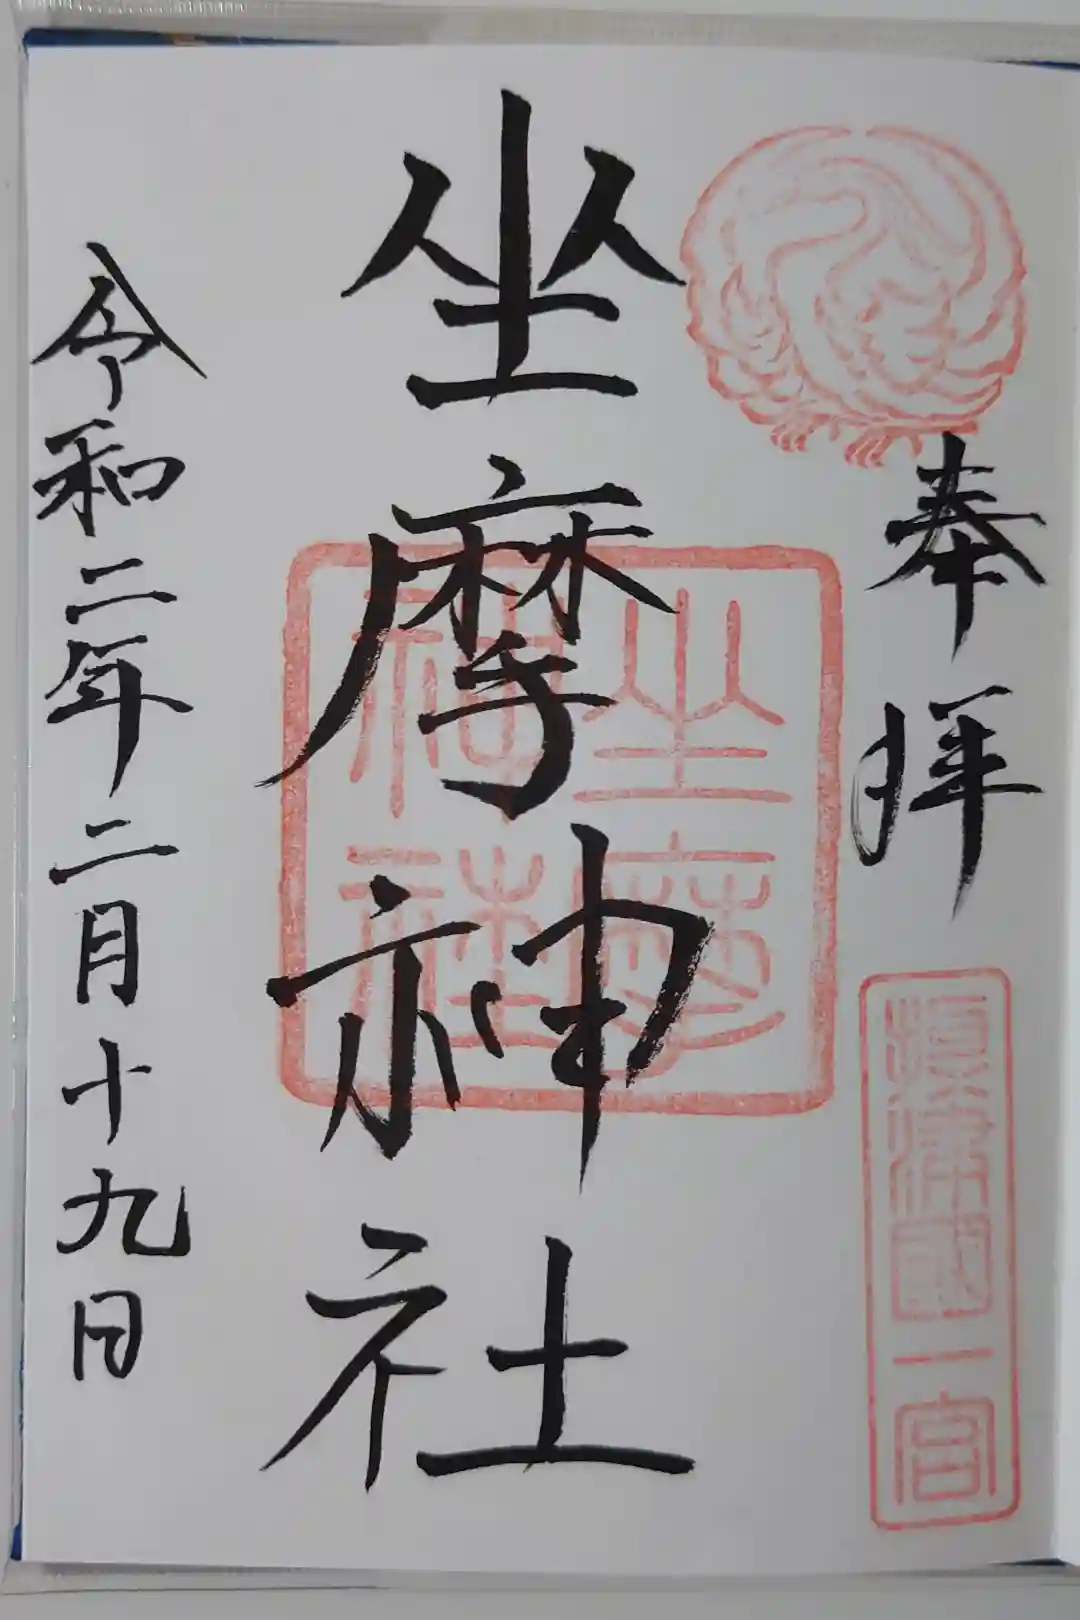 奉拝
攝津國一宮
坐摩神社
坐摩神社
令和二年二月十九日